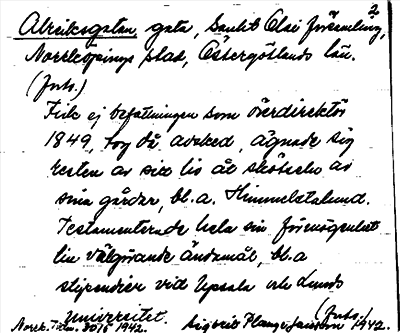 2
Alreiksgatan, gata, Sankt Olai församling,
Norrköpings stad, Östergötlands län.
(forts.)
Fick ej befattningen som överdirektör
1849, tog då avsked, ägnade sig
resten av sitt liv åt skötseln av
sina gårder, bl.a. Himmelstalund.
Testamenterade hela sin förmögenhet
till välgörande ändamål, bl.a
stipendier vid Upsala och Lunds
Universitet. (forts.)
Norrk. Tidn. 30/5 1942. Sigbrit Plange Jansson 1942.